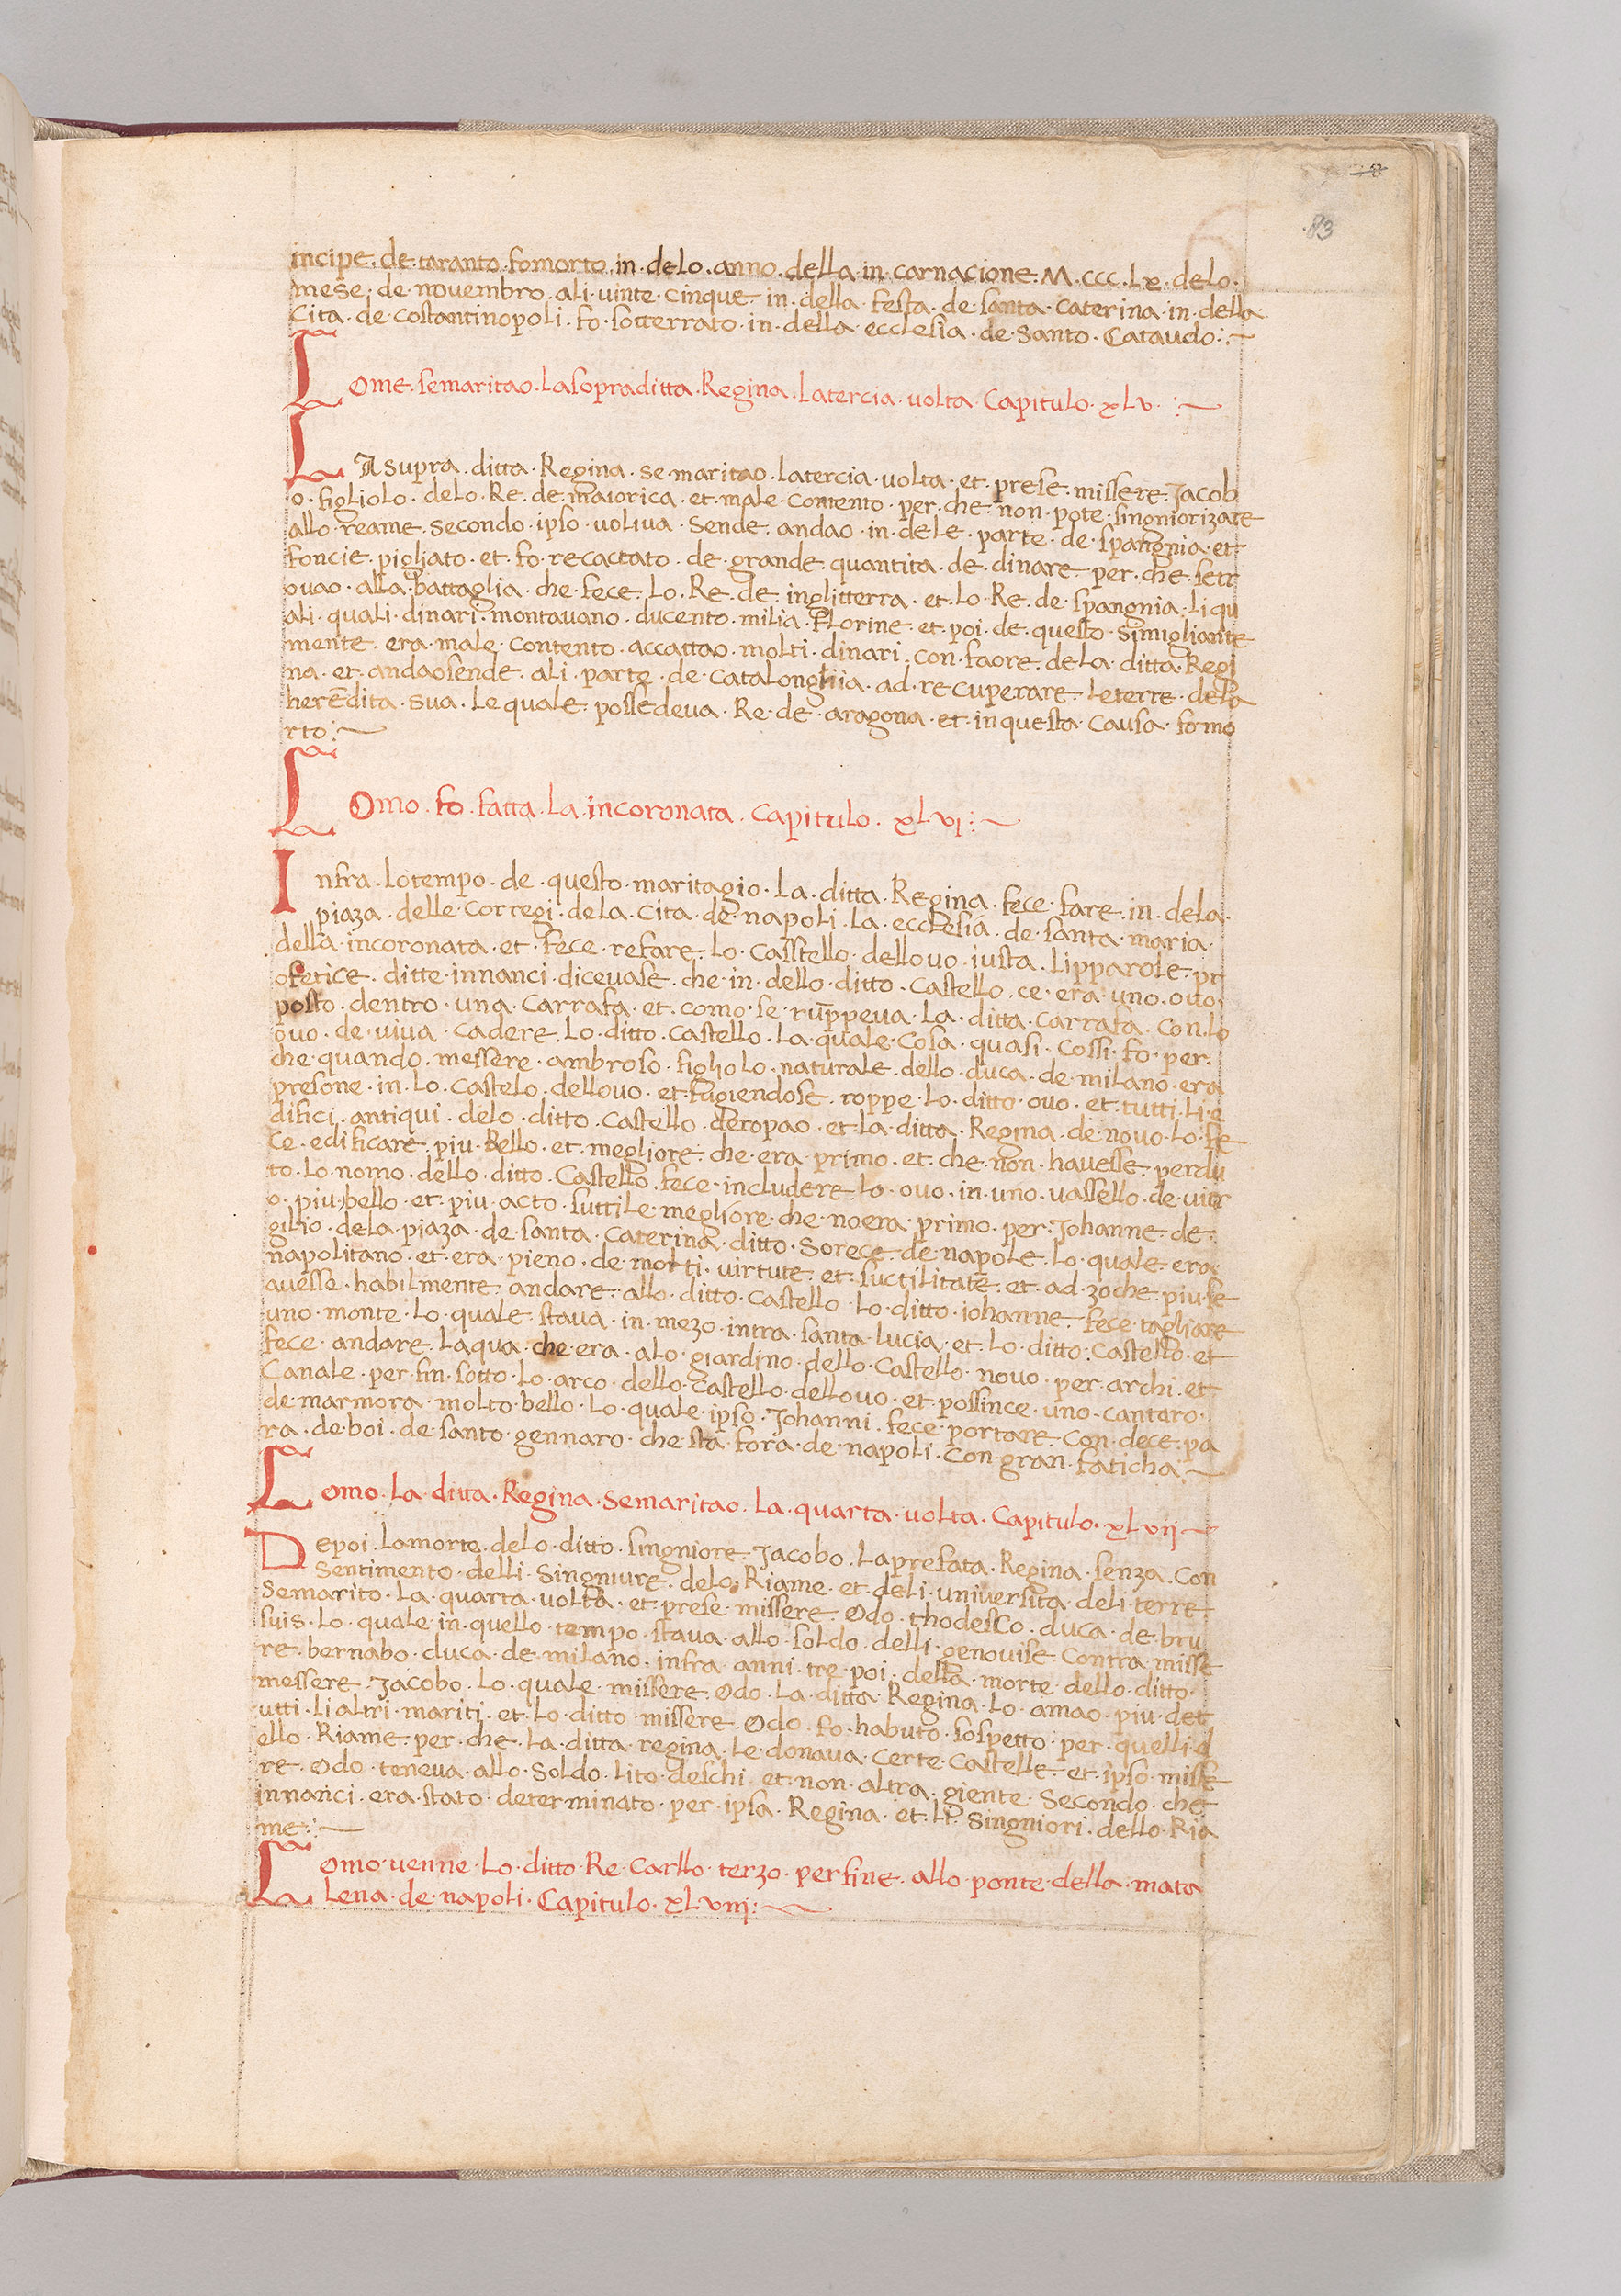 83
incipe. de. taranto. fomorto. in. delo. anno. della. in. carnacione. M. ccc. Lx. delo.
mese. de. nouembro. ali. uinte. cinque. in. della. festa. de. santa. caterina. in. della
Cita. de. costantinopoli. fo. sotterrato. in. della. ecclesia. de. santo. Cataudo:~
Lome. semaritao. Lasopraditta. Regina. Latercia. uolta. Capitulo. xLv. :~
LA supra. ditta. Regina. se. maritao. latercia. uolta. et. prese. missere. Jacob
o. figliolo. delo. Re. de. maiorica. et. male. contento. per. che. non. pote. singniorizare
allo. reame. secondo. ipso. uoliua. Sende. andao. in. dele. parte. de. spangnia. et.
foncie. pigliato. et. fo. recattato. de. grande. quantita. de. dinare. per. che. setr
ouao. alla. battaglia. che. fece. Lo. Re. de. inglitterra. et. Lo. Re. de. spangnia. li qu
ali. quali. dinari. montauano. ducento. milia. Florine. et. poi. de. questo. simigliante
mente. era. male. contento. accattao. molti. dinari. con. faore. dela. ditta. Regi
na. et. andaosende. ali. parte. de. Catalonghia. ad. recuperare. Leterre. dela
heredita. sua. Le quale. possedeua. Re. de. aragona. et. in questa. causa. fo mo
rto:~
Lomo. fo. fatta. la. incoronata. capitulo. xLvi:~
Infra. lotempo. de. questo. maritagio. La. ditta. Regina. fece. fare. in. dela.
piaza. delle. Corregi. dela. Cita. de. napoli. La. ecclesia. de. santa. maria.
della. incoronata. et. fece. refare. Lo. Casstello. dellouo. iusta. Lipparole. pr
ofetice. ditte. innanci. diceuase. che. in. dello. ditto. castello. ce. era. uno. ouo.
posto. dentro. una. carrafa. et. como. se. rumppeua. La. ditta. carrafa. con. lo
ouo. de. viua. cadere. Lo. ditto. castello. La. quale. cosa. quasi. cossi. fo. per.
che. quando. messere. ambroso. figliolo. naturale. dello. duca. de. milano. era
presone. in. lo. castelo. dellouo. et. fugiendose. roppe. lo. ditto. ouo. et. tutti. Li. e
difici. antiqui. delo. ditto. castello. deropao. et. La. ditta. Regina. de. nouo. Lo. fe
ce. edificare. piu. Bello. et. megliore. che. era. primo. et. che. non. hauesse. perdu
to. lo. nomo. dello. ditto. Castello. fece. includere. lo. ouo. in. uno. uassello. de. uitr
o. piu. bello. et. piu. acto. suttile. megliore. che. noera. primo. per. Johanne. de.
gilio. dela. piaza. de. santa. caterina. ditto. Sorece. de. napole. Lo. quale. era.
napolitano. et. era. pieno. de. molti. uirtute. et. suctilitate. et. ad. zoche. piu. se
auesse. habilmente. andare. allo. ditto. castello. lo. ditto. iohanne. fece. tagliare
uno. monte. lo. quale. staua. in. mezo. intra. santa. lucia. et. lo. ditto. castello. et
fece. andare. Laqua. che. era. alo. giardino. dello. castello. nouo. per. archi. et
Canale. per. fin. sotto. lo. arco. dello. castello. dellouo. et. possince. uno. cantaro.
de. marmora. molto. bello. lo. quale. ipso. Johanni. fece. portare. con. dece. pa
ra. de. boi. de. santo. gennaro. che. sta. fora. de. napoli. con. gran. faticha.~
Lomo. la. ditta. Regina. semaritao. la. quarta. uolta. Capitulo. xLvii~
Depoi. Lamorte. delo. ditto. singniore. Jacobo. Laprefata. Regina. senza. con
Sentimento. delli. Singniure. delo. Riame. et. deli. uniuersita. deli. terre.
Semarito. La. quarta. uolta. et. prese. missere. Odo. thodesco. duca. de. bru
suis. lo. quale. in. quello. tempo. staua. allo. soldo. delli. genouise. contra. misse
re. bernabo. duca. de. milano. infra. anni. tre. poi. della. morte. dello. ditto.
messere. Jacobo. Lo. quale. missere. Odo. La. ditta. Regina. lo. amao. piu. det
utti. li altri. mariti. et. lo. ditto. missere. Odo. fo. habuto. sospetto. per. quelli. d
ello. Riame. per. che. La. ditta. regina. Le. donaua. certe. castelle. et. ipso. misse
re. Odo. teneua. allo. soldo. lito. deschi. et. non. altra. giente. secondo. che.
innanci. era. stato. determinato. per. ipsa. Regina. et. li. Singniori. dello. Ria
me:~
Lomo. uenne. Lo. ditto. Re. Carllo. terzo. perfine. allo. ponte. della. mata
Lena. de. napoli. Capitulo. xLviii:~